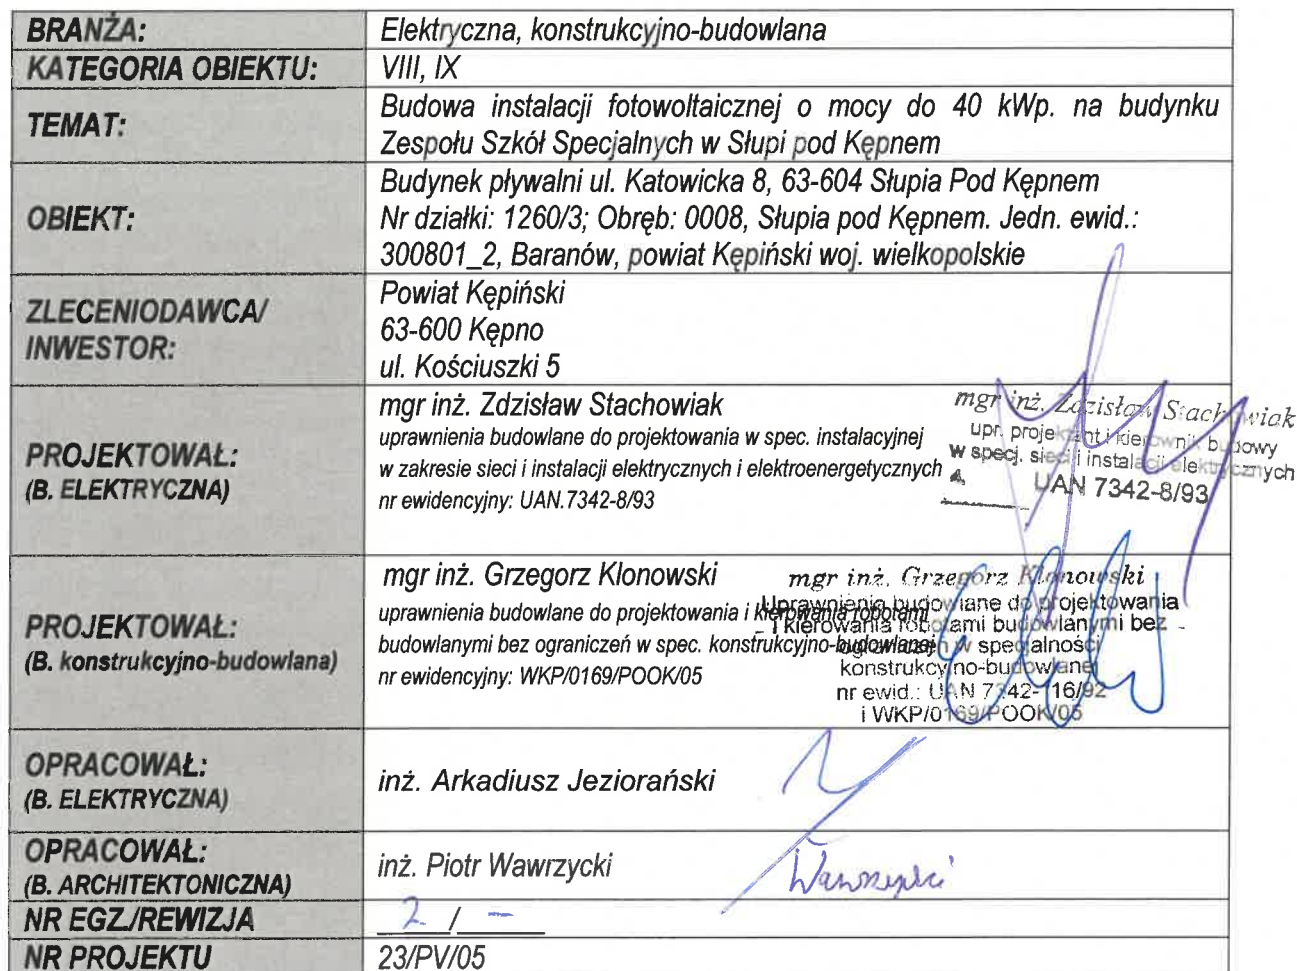 BRANŻA:
Elektryczna, konstrukcyjno-budowlana
KATEGORIA OBIEKTU:
VIII, IX
TEMAT:
Budowa instalacji fotowoltaicznej o mocy do 40 kWp. na budynku
Zespołu Szkół Specjalnych w Słupi pod Kępnem
OBIEKT:
Budynek pływalni ul. Katowicka 8, 63-604 Słupia Pod Kępnem
Nr działki: 1260/3; Obręb: 0008, Słupia pod Kępnem. Jedn. ewid.:
300801_2, Baranów, powiat Kępiński woj. wielkopolskie
ZLECENIODAWCA/
INWESTOR:
Powiat Kępiński
63-600 Kępno
ul. Kościuszki 5
PROJEKTOWAŁ:
(B. ELEKTRYCZNA)
mgr inż. Zdzisław Stachowiak
uprawnienia budowlane do projektowania w spec. instalacyjnej
w zakresie sieci i instalacji elektrycznych i elektroenergetycznych
nr ewidencyjny: UAN.7342-8/93
mgr inż. Zdzisław Stachowiak
upr. projektant i kierownik budowy
w specj. sieci i instalacji elektrycznych
UAN 7342-8/93
PROJEKTOWAŁ:
(B. konstrukcyjno-budowlana)
mgr inż. Grzegorz Klonowski
uprawnienia budowlane do projektowania i kierowania robotami
budowlanymi bez ograniczeń w spec. konstrukcyjno-budowlanej
nr ewidencyjny: WKP/0169/POOK/05
mgr inż. Grzegorz Klonowski
Uprawnienia budowlane do projektowania
i kierowania robotami budowlanymi bez
ograniczeń w specjalności
konstrukcyjno-budowlanej
nr ewid.: UAN 7342-116/92
i WKP/0169/POOK/05
OPRACOWAŁ:
(B. ELEKTRYCZNA)
inż. Arkadiusz Jeziorański
OPRACOWAŁ:
(B. ARCHITEKTONICZNA)
inż. Piotr Wawrzycki
Wawrzycki
NR EGZ./REWIZJA
2 / -
NR PROJEKTU
23/PV/05